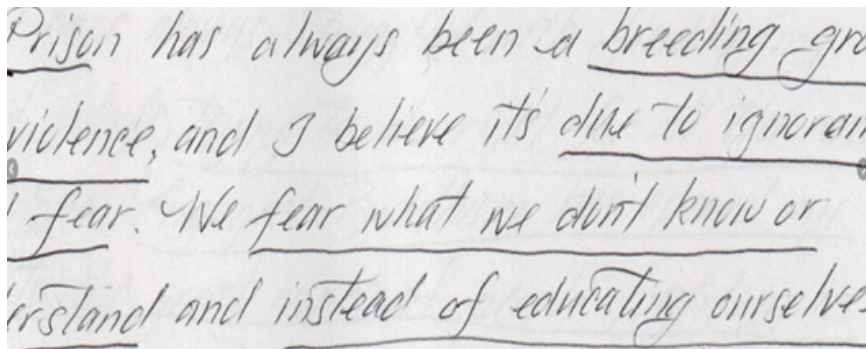 Prison has always been a breeding gro
violence, and I believe it's due to ignoran
fear. We fear what we don't know or
erstand and instead of educating ourselve